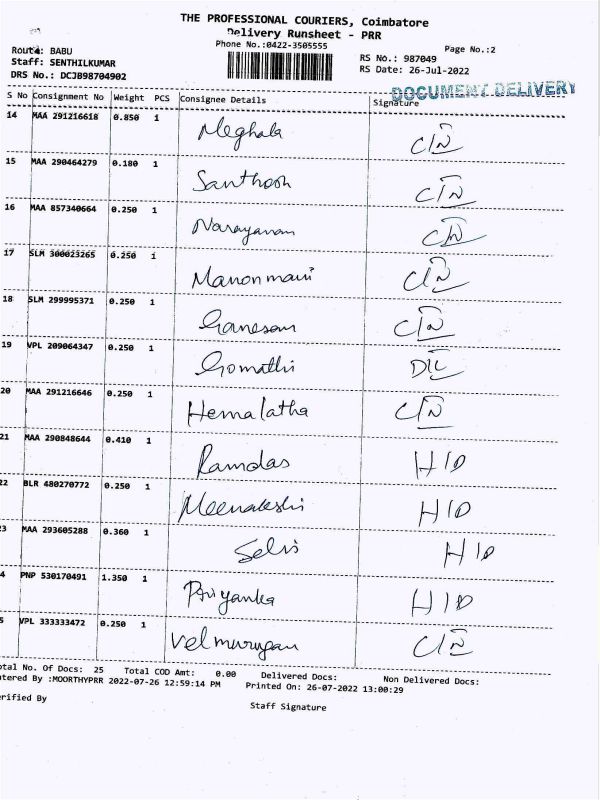 THE PROFESSIONAL COURIERS, Coimbatore
Delivery Runsheet - PRR
Phone No.:0422-3505555
Page No.:2
Route: BABU
RS No.: 987049
Staff: SENTHILKUMAR
RS Date: 26-Jul-2022
DRS No.: DCJB98704902
DOCUMENT DELIVERY
S No Consignment No Weight PCS Consignee Details Signature
14 MAA 291216618 0.850 1 Meghala C/N
15 MAA 290464279 0.180 1 Santhosh C/N
16 MAA 857340664 0.250 1 Narayanan C/N
17 SLM 300023265 0.250 1 Manonmani C/N
18 SLM 299995371 0.250 1 Ganesan C/N
19 VPL 209064347 0.250 1 Gomathi D/L
20 MAA 291216646 0.250 1 Hemalatha C/N
21 MAA 290848644 0.410 1 Ramdas H/D
22 BLR 480270772 0.250 1 Meenakshi H/D
3 MAA 293605288 0.360 1 Selvi H/D
4 PNP 530170491 1.350 1 Priyanka H/D
5 VPL 333333472 0.250 1 Velmurugan C/N
otal No. Of Docs: 25 Total COD Amt: 0.00 Delivered Docs: Non Delivered Docs:
ntered By :MOORTHYPRR 2022-07-26 12:59:14 PM Printed On: 26-07-2022 13:00:29
erified By
Staff Signature